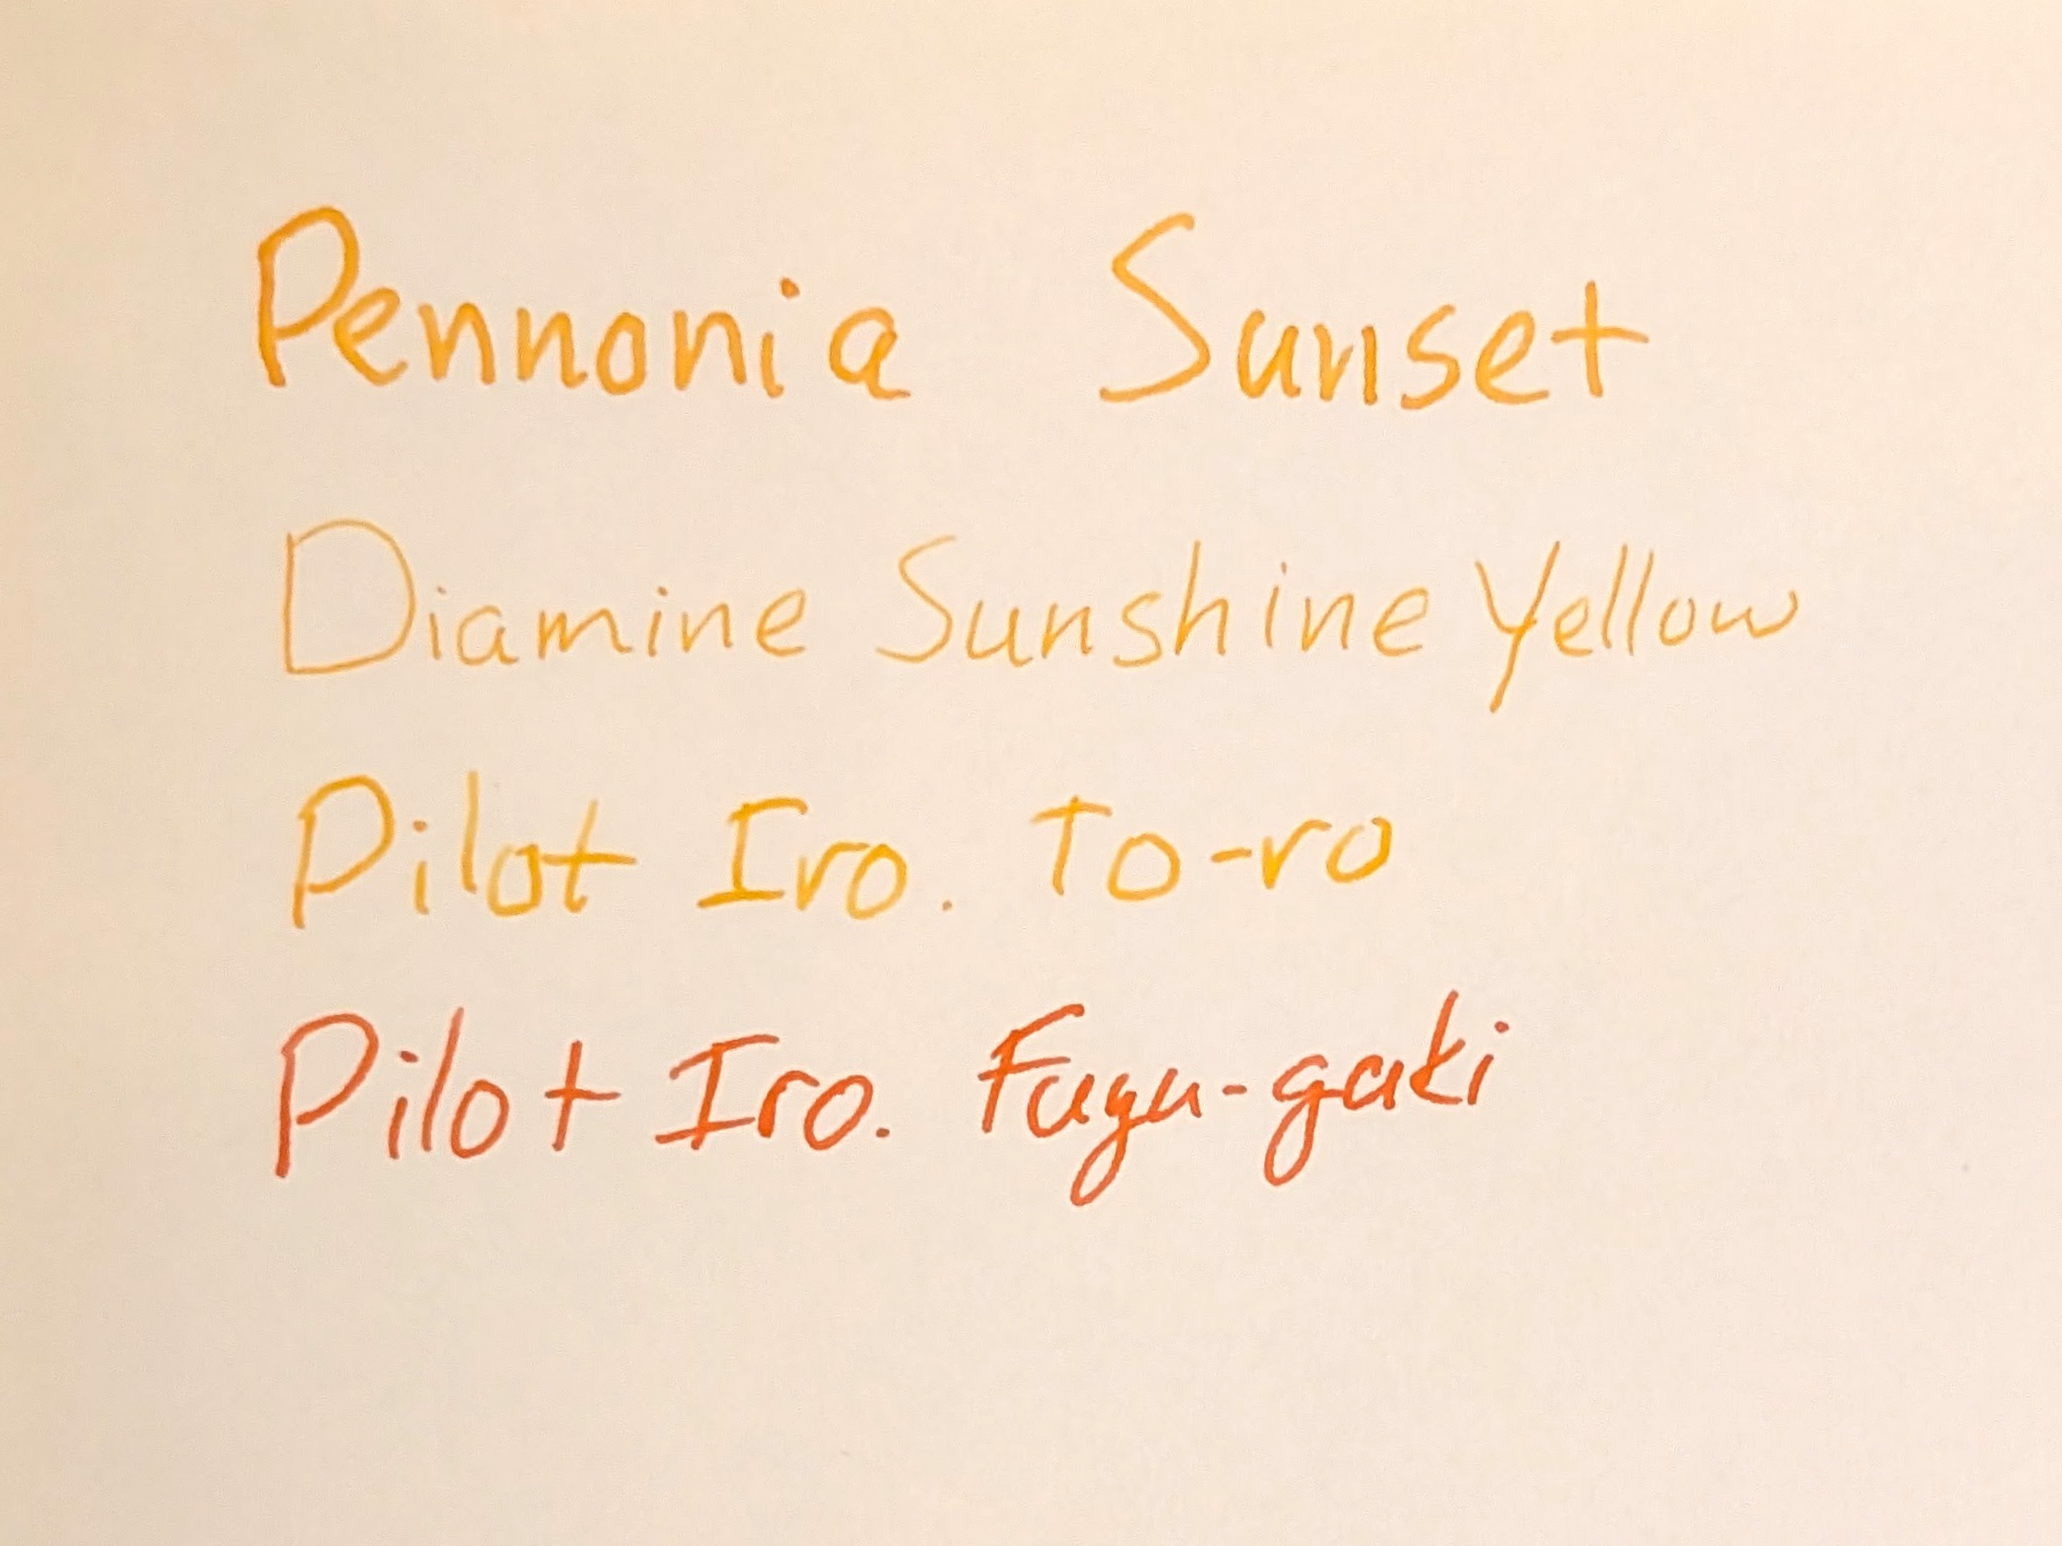 Pennonia Sunset
Diamine Sunshine Yellow
Pilot Iro. To-ro
Pilot Iro. Fuyu-gaki